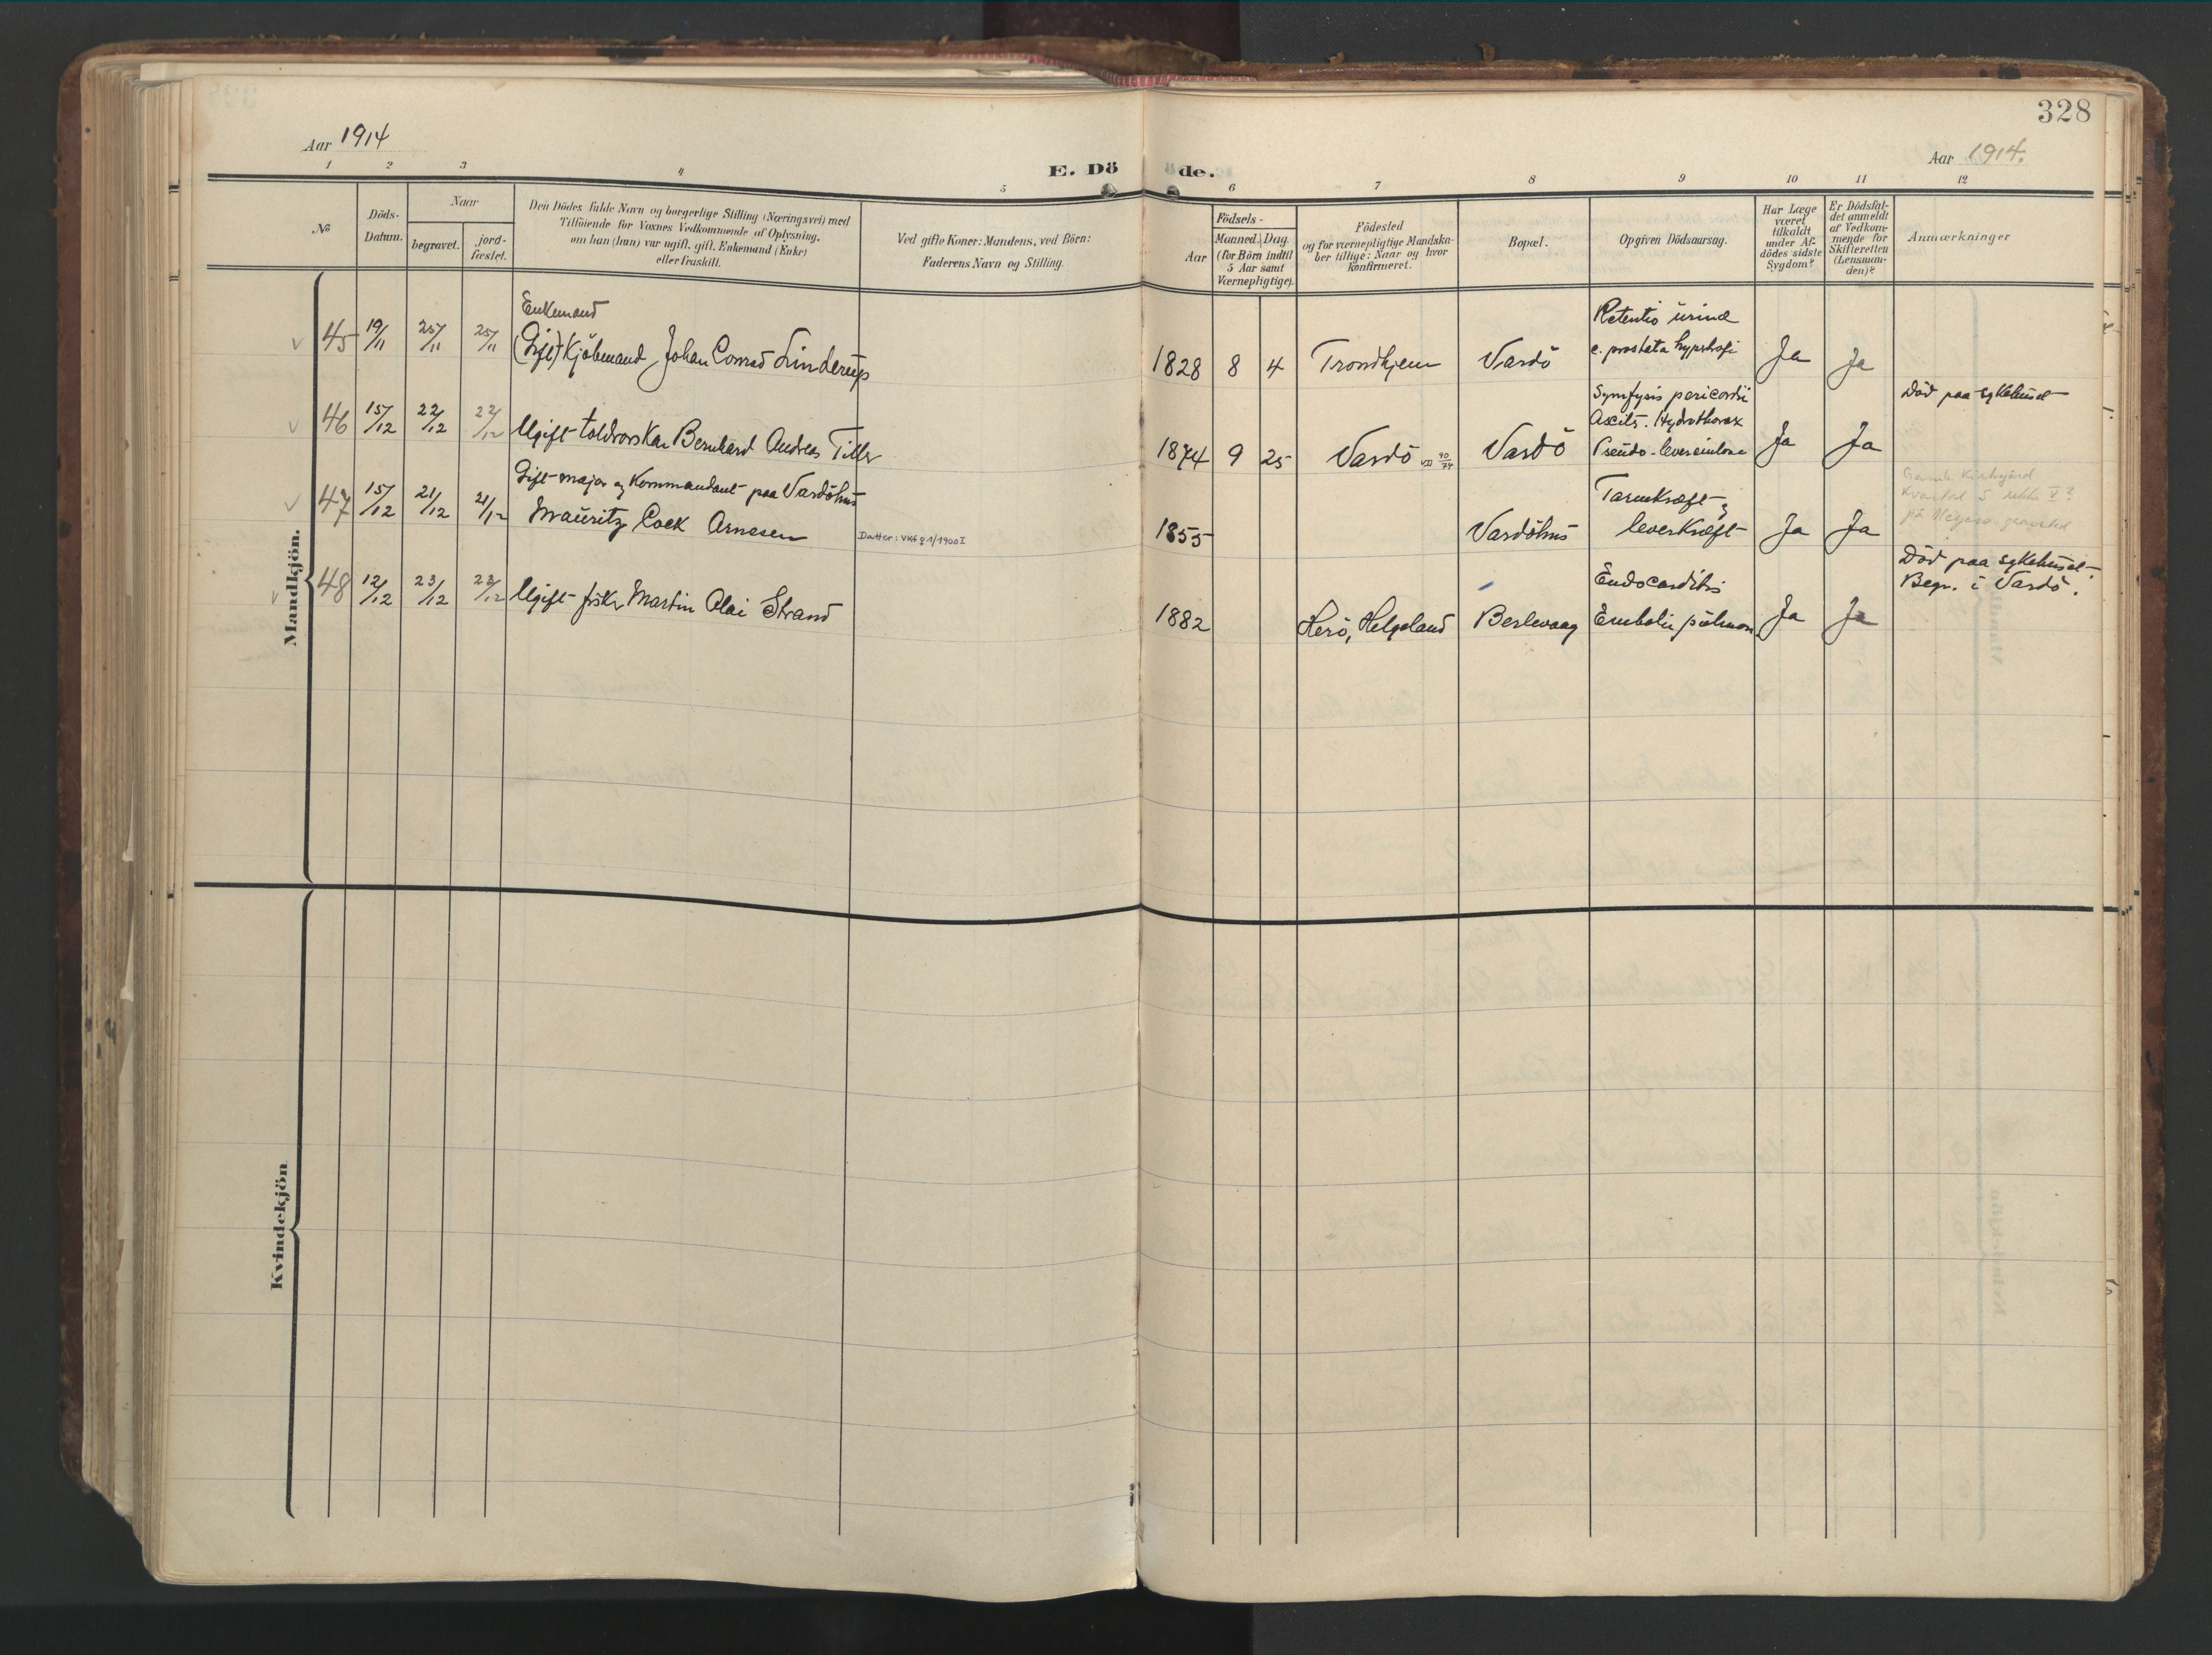 328
Aar 1914
Aar 1914.
E. Dö de.
1 2 3 4 5 6 7 8 9 10 11 12
№
Döds-
Datum.
Naar
begravet.
jord-
fæstet.
Den Dödes fulde Navn og borgerlige Stilling (Næringsvei) med
Tilföiende for Voxnes Vedkommende af Oplysning,
om han (hun) var ugift, gift, Enkemand (Enke)
eller fraskilt.
Ved gifte Koner: Mandens, ved Börn:
Faderens Navn og Stilling.
Födsels-
Aar
Maaned. Dag.
(for Börn indtil
5 Aar samt
Værnepligtige).
Födested
og for værnepligtige Mandska-
ber tillige: Naar og hvor
konfirmeret.
Bopæl.
Opgiven Dödsaarsag.
Har Læge
været
tilkaldt
under Af-
dödes sidste
Sygdom?
Er Dödsfal-
det anmeldt
af Vedkom-
mende for
Skifteretten
(Lensman-
den)?
Anmærkninger
Mandkjön.
Enkemand
45 19/11 25/11 25/11 (Gift) Kjöbmand Johan Conrad Linderup 1828 8 4 Trondhjem Vardö
Retentio urinæ
c. prostata hypertrofi
Ja Ja
46 15/12 22/12 22/12 Ugift toldvorskar Bernhard Andreas Tiller 1874 9 25 Vardö Vardö
Symfysis pericordii
Ascites. Hydrothorax
Pseudo-
Ja Ja
Död paa sykehuset
Gift major og Kommandant paa Vardöhus
47 15/12 21/12 21/12 Mauritz Cock Arnesen
Datter: VKf ♀ 1/1900 I
1855 Vardöhus
Tarmkræft og
leverkræft
Ja Ja
Gamle Kirkegård
Kvartal 5 rekke V?
48 12/12 23/12 23/12 Ugift fisker Martin Olai Strand 1882 Herö, Helgeland Berlevaag
Endocarditis
Emboli pulmon.
Ja Ja
Död paa sykehuset.
Begr. i Vardö.
Kvindekjön